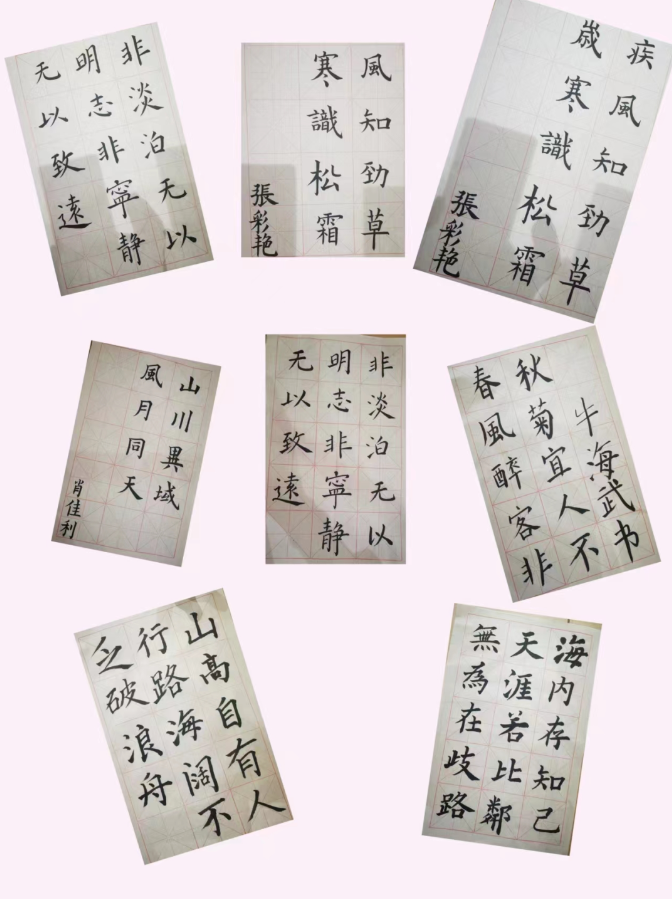 非淡泊无以
明志非寧静
无以致遠
風知勁草
寒識松霜
張彩艳
疾風知勁草
嵗寒識松霜
張彩艳
山川異域
風月同天
肖佳利
非淡泊无以
明志非寧静
无以致遠
春風醉客非
秋菊宜人不
牛海武书
山高自有人
行路海闊不
乏破浪舟
海内存知己
天涯若比鄰
無為在歧路